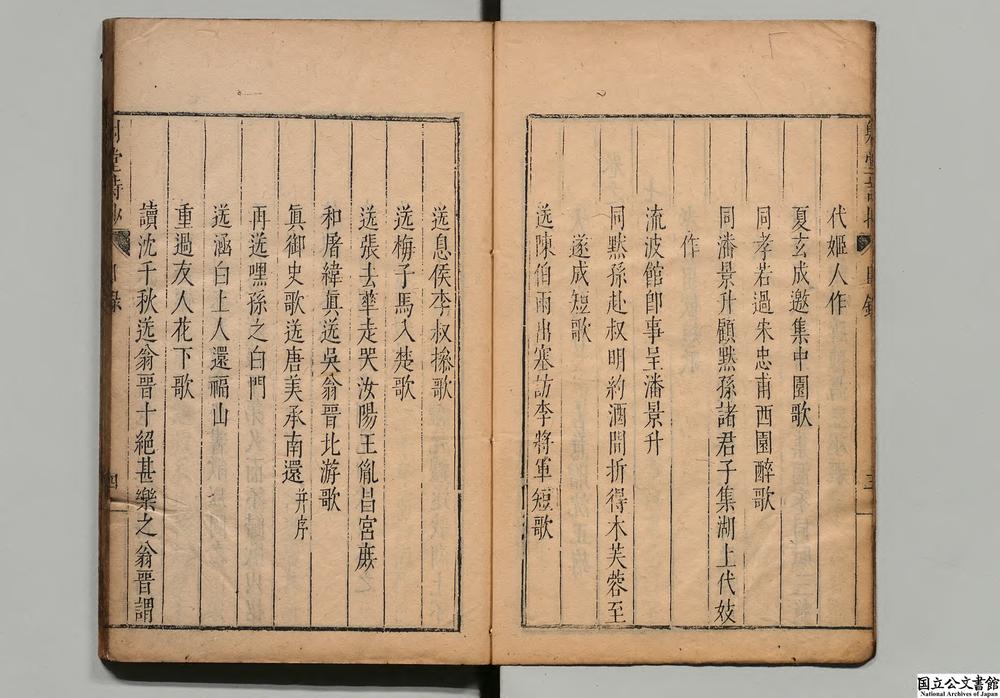 代姬人作
夏玄成邀集中園歌
同孝若過朱忠甫西園醉歌
同潘景升顧黙孫諸君子集湖上代妓
作
流波館卽事呈潘景升
同黙孫赴叔明約酒間折得木芙蓉至
遂成短歌
送陳伯雨出塞訪李將軍短歌
送息侯李叔操歌
送梅子馬入楚歌
送張去華走哭汝陽王胤昌宮庶
和屠緯眞送吳翁晉北游歌
眞御史歌送唐美承南還并序
再送嘿孫之白門
送涵白上人還福山
重過友人花下歌
讀沈千秋送翁晉十絕甚樂之翁晉謂
堂詩
目錄
四
目錄
三
国立公文書館
National Archives of Japan